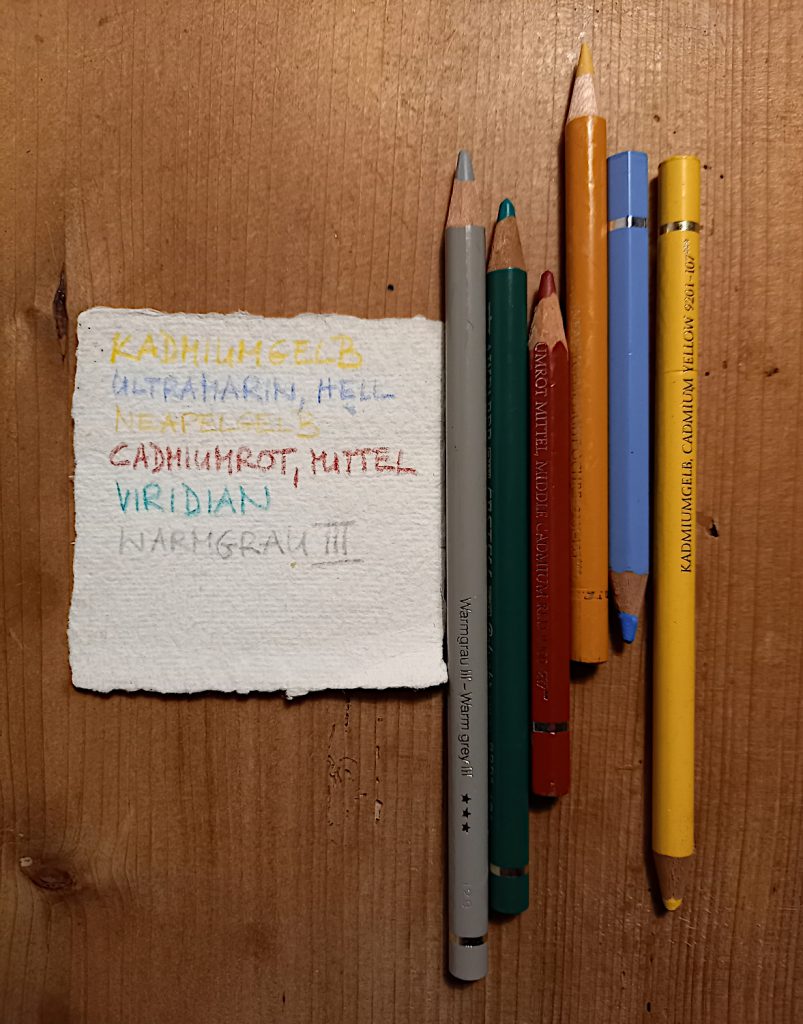 KADMIUMGELB
ULTRAMARIN, HELL
NEAPELGELB
CADMIUMROT, MITTEL
VIRIDIAN
WARMGRAU III
Warmgrau III - Warm grey III ★★★
UMROT MITTEL, MIDDLE CADMIUM RED
KADMIUMGELB, CADMIUM YELLOW 9201-107***